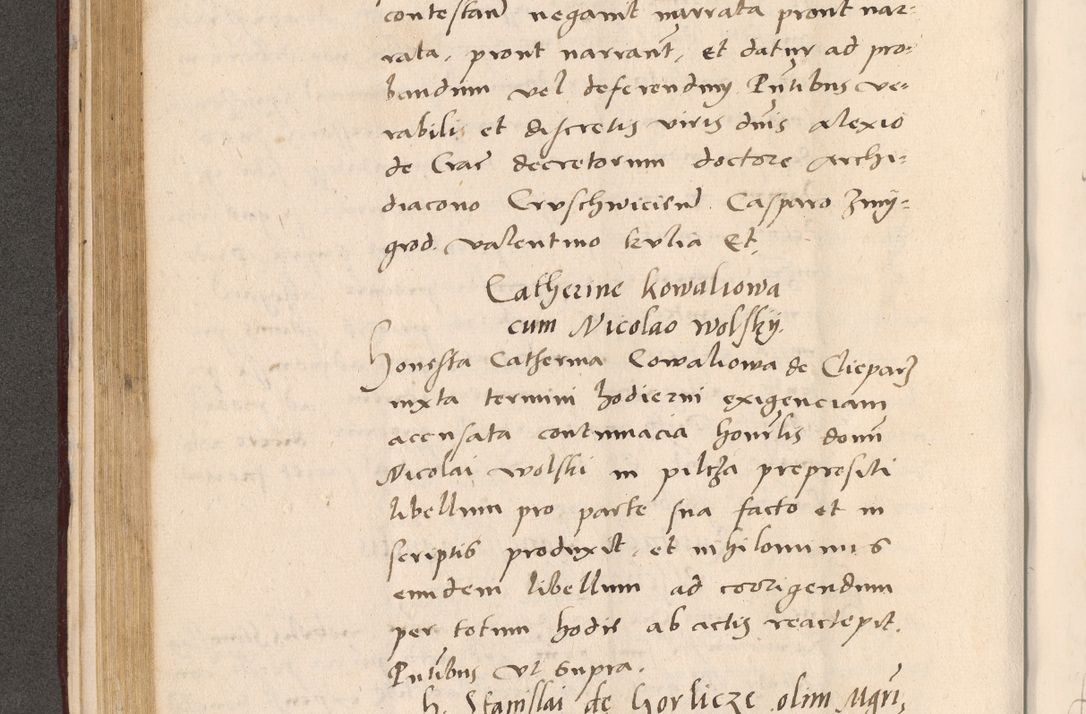 contestan negavit narrata pront nar-
rata, pront narrant, et datur ad pro-
bandum vel deferendum Pntibus ve-
rabilis et discretis viris dnis Alexio
de Grac decretorum doctore Archi-
diacono Cruschwicien Casparo Zmy-
grod Valentino Kulia Et
Catherine Kowaliowa
cum Nicolao Wolsky
Honesta Catherina Cowaliowa de Clepar
iuxta termini hodierni exigenciam
accusata contumacia honrlis domi
Nicolai Wolski in pilcza prepositi
libellum pro parte sua facto et in
scriptis produxit, et nihilominus
eundem libellum ad corrigendum
per totum hodie ab actis reaccepit.
Pntibus Ut Supra.
h. Stanislai de Gorlicze olim Mgri,